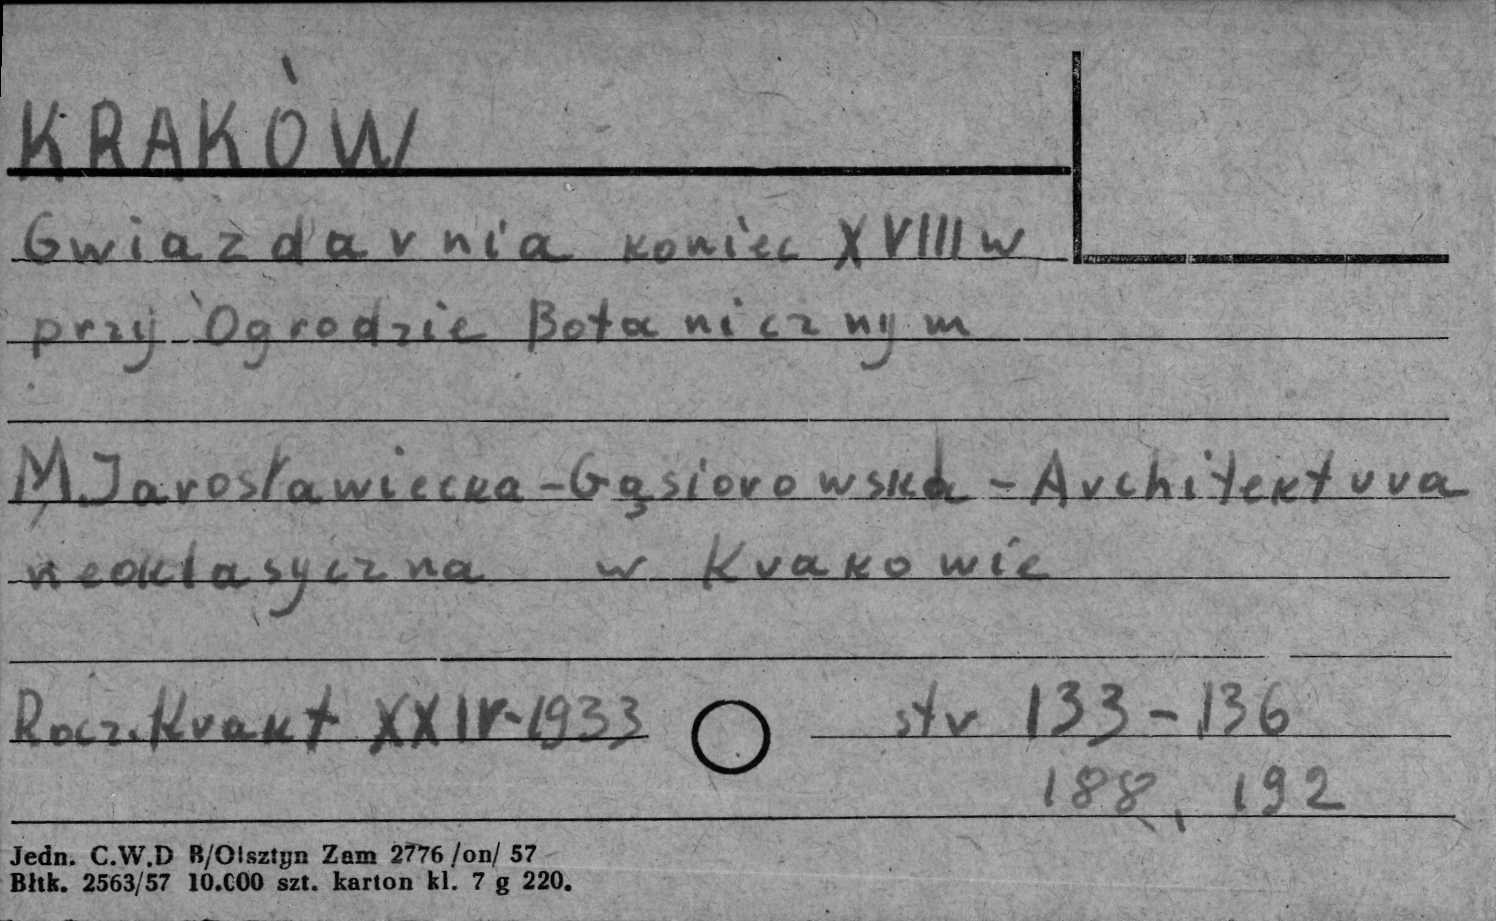 KRAKÓW
Gwiazdarnia koniec XVIII w
przy Ogrodzie Botanicznym
M. Jarosławiecka-Gąsiorowska - Architektura
neoklasyczna w Krakowie
Rocz. Krakt XXIV-1933 str 133-136
188, 192
Jedn. C.W.D B/Olsztyn Zam 2776 /on/ 57
Błtk. 2563/57 10.000 szt. karton kl. 7 g 220.